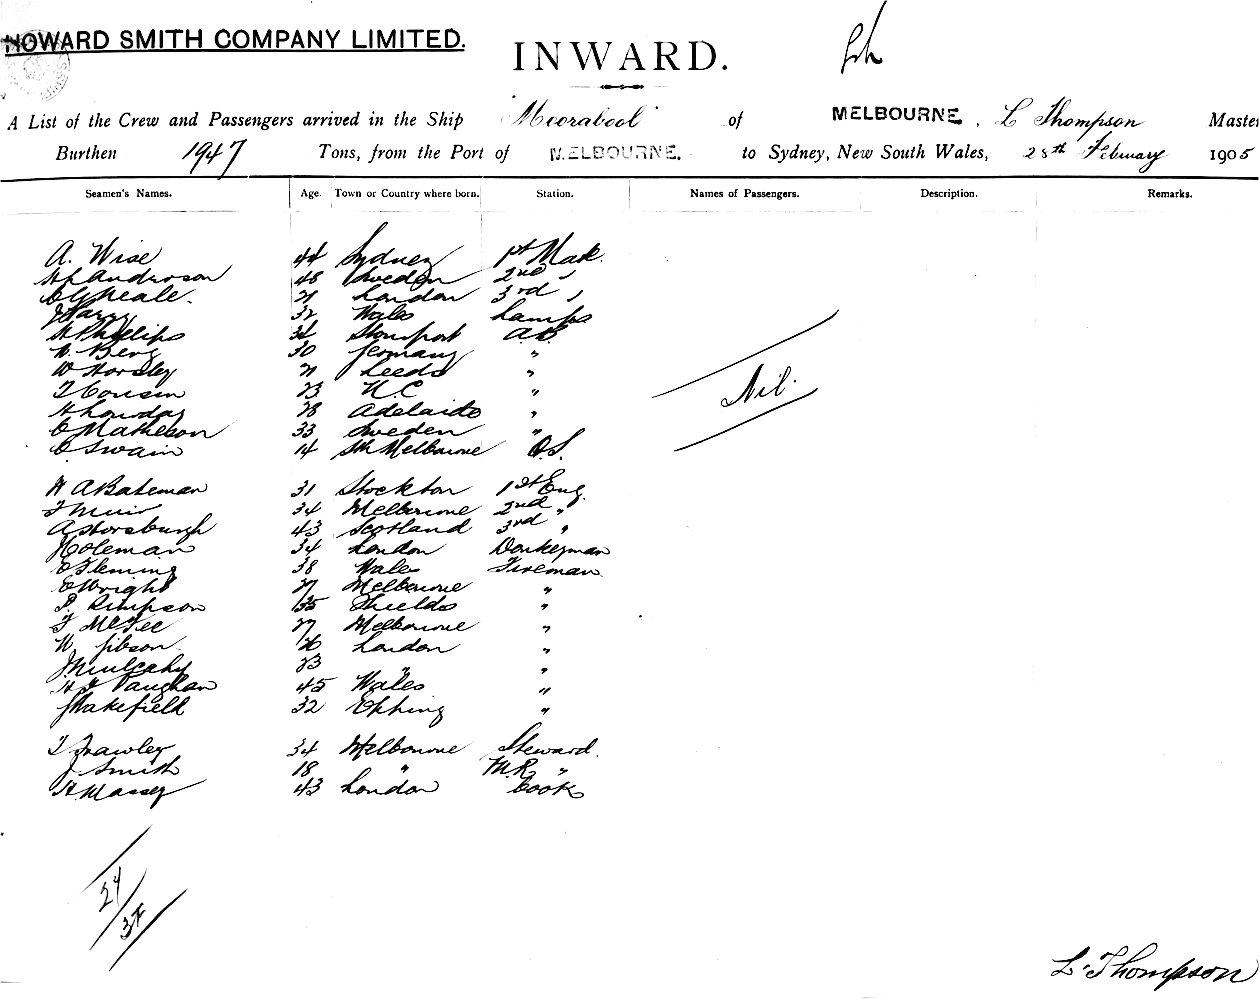 HOWARD SMITH COMPANY LIMITED.
INWARD.
A List of the Crew and Passengers arrived in the Ship Moorabool of MELBOURNE, L Thompson Master
Burthen 1947 Tons, from the Port of MELBOURNE. to Sydney, New South Wales, 28th February 1905
Seamen's Names. Age. Town or Country where born. Station. Names of Passengers. Description. Remarks.
A. Wise 44 Sydney 1st Mate
Anderson 48 Sweden 2nd "
Neale. 21 London 3rd "
J Parry 32 Wales Lamps
H Phillips Stourport AB
W. Berg 30 Germany "
W Horsley 21 Leeds "
T Cousin 23 N.C "
H Lowday 28 Adelaide "
C Matheson 33 Sweden "
C Swain 14 Sth Melbourne O.S.
Nil.
H A Bateman 31 Stockton 1st Eng.
T Muir 34 Melbourne 2nd "
A Horsburgh 43 Scotland 3rd "
J Coleman 34 London Donkeyman
C Fleming 38 Wales Fireman
E Wright 27 Melbourne "
P. Simpson 35 Shields "
T McFee 27 Melbourne "
W. Gibson 26 London "
J Mulcahy 23 " "
H J Vaughan 45 Wales "
J Wakefield 32 Epping "
T Frawley 34 Melbourne Steward
J Smith 18 " M.R. "
H. Massey 43 London Cook
L. Thompson